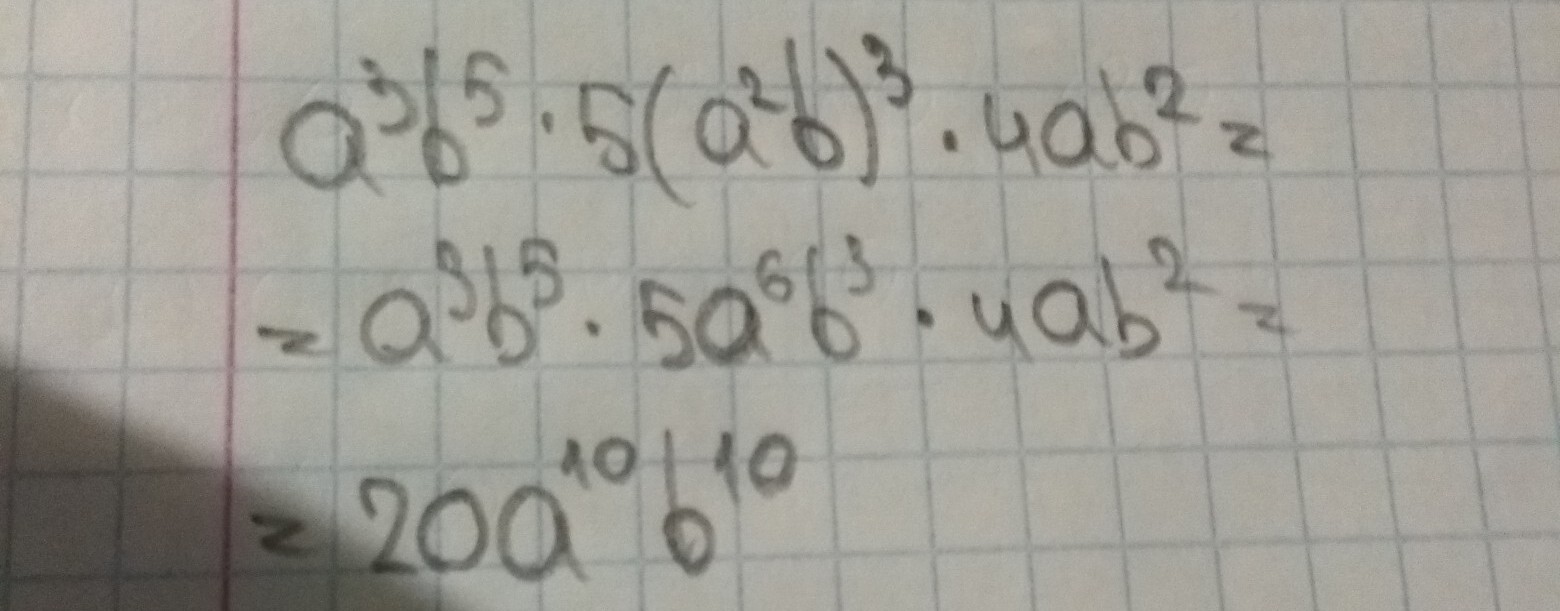 a³b⁵ · 5(a²b)³ · 4ab² =
= a³b⁵ · 5a⁶b³ · 4ab² =
= 20a¹⁰b¹⁰